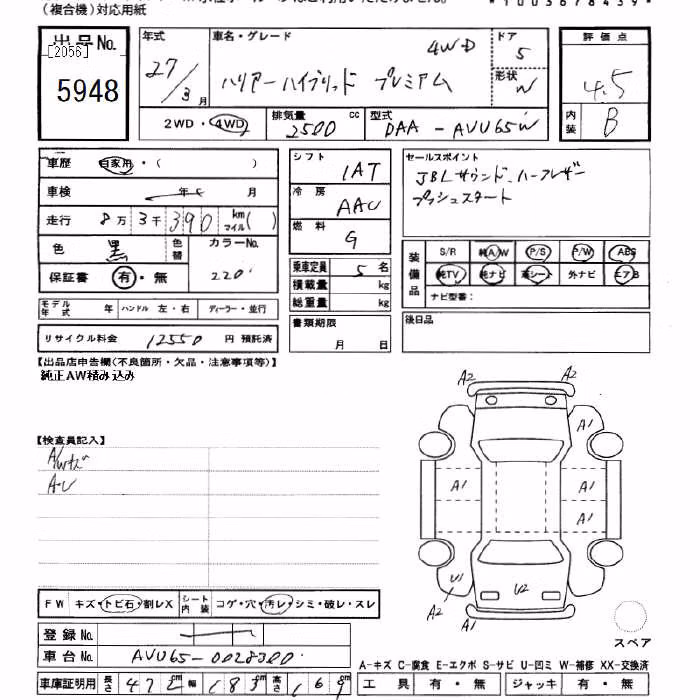 (複合機)対応用紙
*1003678439*
出品No.
[2056]
5948
年式
27/3月
車名・グレード
4WD
ハリアーハイブリッド プレミアム
ドア
5
形状
W
評価点
4.5
内装
B
2WD・4WD
排気量
2500 cc
型式
DAA-AVU65W
車歴 自家用・( )
車検 年 月
走行 8万3千390 km マイル( )
色 黒 色替
カラーNo.
220
保証書 有・無
モデル年式 年 ハンドル 左・右 ディーラー・並行
リサイクル料金 12550 円 預託済
シフト
1AT
冷房
AAC
燃料
G
乗車定員 5 名
積載量 kg
総重量 kg
書類期限
月 日
セールスポイント
JBLサウンド、ハーフレザー
プッシュスタート
装備品
S/R 純A/W P/S P/W ABS
純TV 純ナビ 革シート 外ナビ エアB
ナビ型番:
後日品
【出品店申告欄(不良箇所・欠品・注意事項等)】
純正AW積み込み
【検査員記入】
A/Wキズ
A・U
A2
A2
A1
A1
A1
A1
U1
A2
A2
U2
スペア
FW キズ・トビ石・割レX シート内装 コゲ・穴・汚レ・シミ・破レ・スレ
登録No.
車台No. AVU65-0028300
車庫証明用 長さ 472 cm 幅 183 cm 高さ 169
A-キズ C-腐食 E-エクボ S-サビ U-凹ミ W-補修 XX-交換済
工具 有・無 ジャッキ 有・無